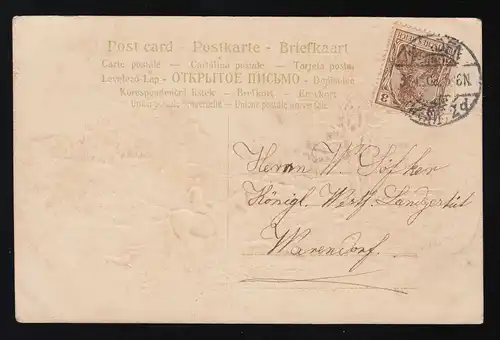 Post card - Postkarte - Briefkaart
Carte postale — Cartolina postale — Tarjeta posta
Levelező-Lap - ОТКРЫТОЕ ПИСЬМО - Dopisnice
Korespondenční lístek — Brefkort — Brevkort
Unione postale universale
3
8N.
Herrn W. Söfker
Königl. Westf. Landgestüt
Warendorf.